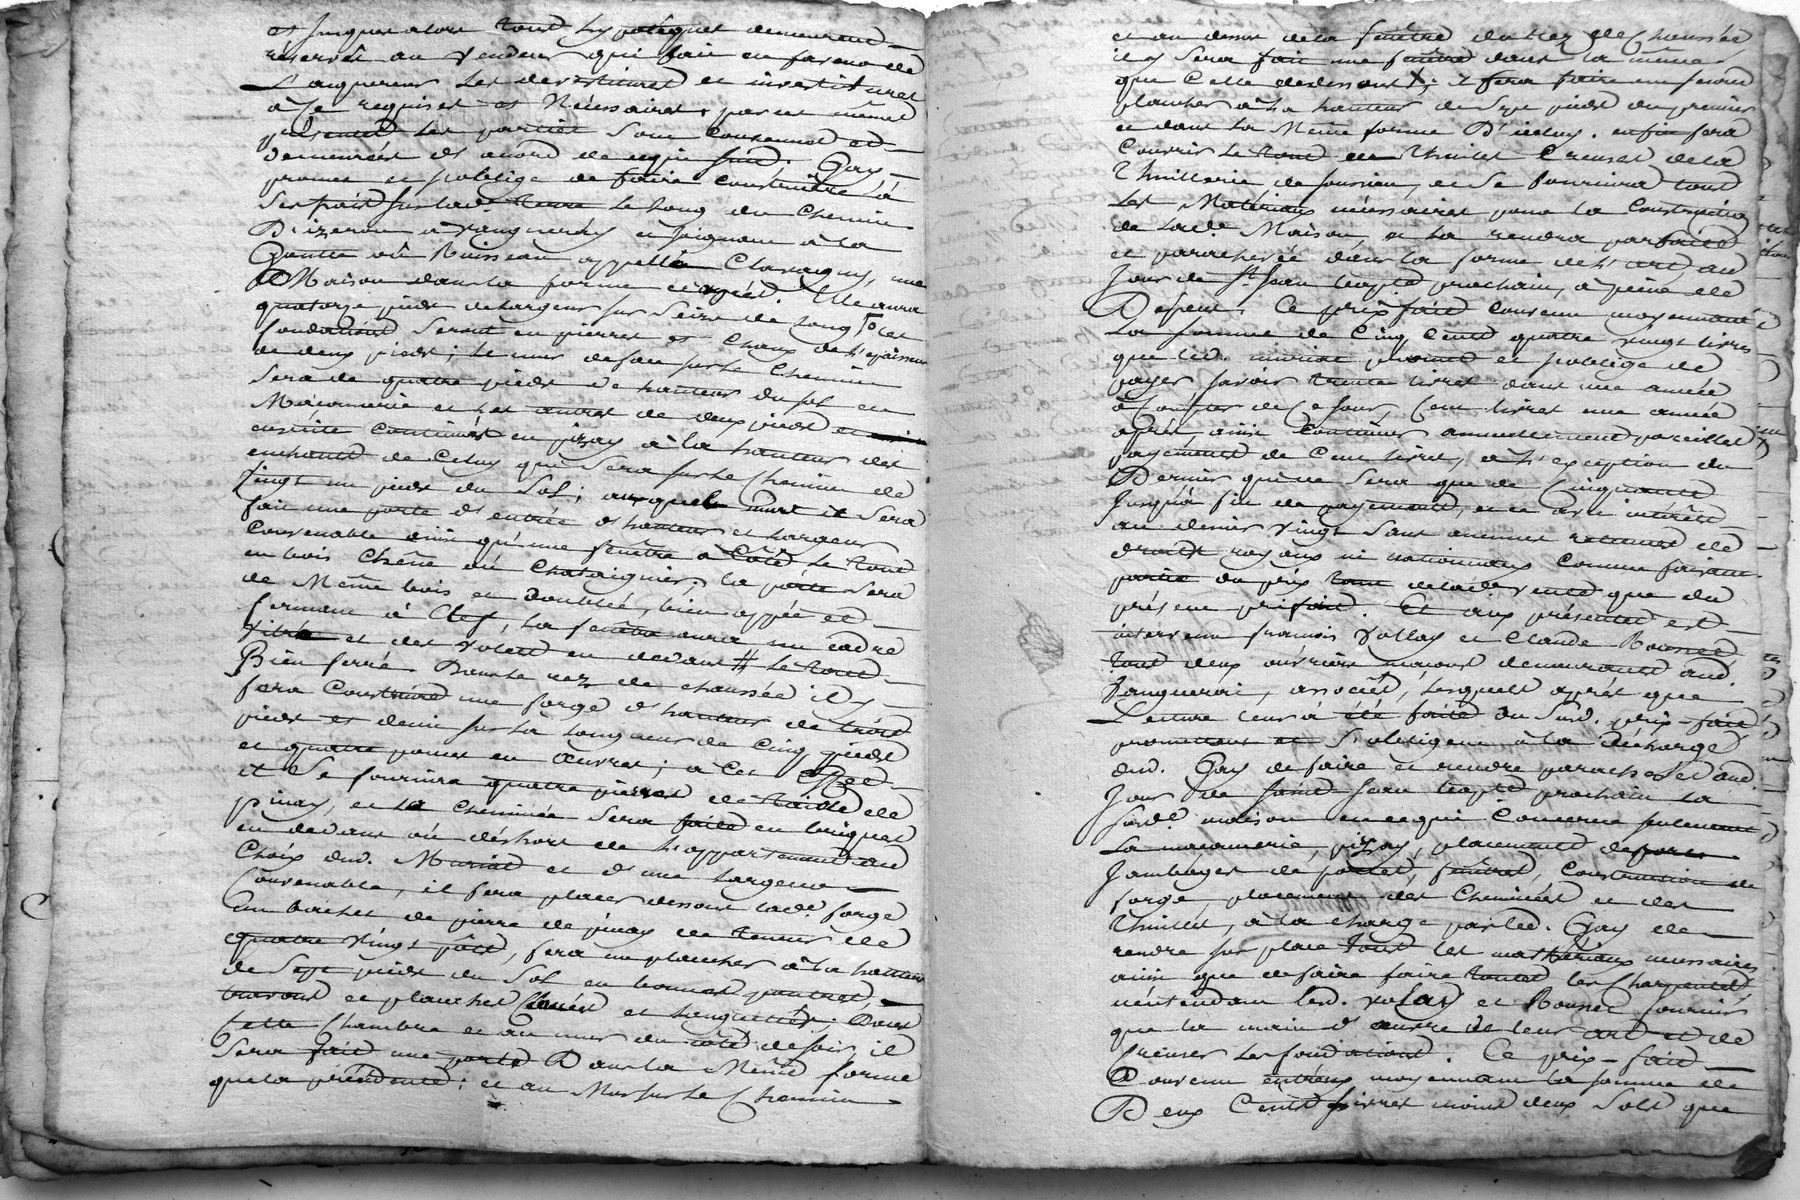 et jusques alors tous hypotèques demeurent
réservés au vendeur qui fait en faveur de
L'aquereur les devestitures et investitures
à ce requises et Nécessaires, par ces mêmes
présentes les parties sont convenues et
demeurées d'acord de ce qui suit. Gay
promet et s'oblige de faire construire à
ses frais sur lad. terre le long du Chemin
D'izeron à vaugneray et joignant à la
Goutte où Ruisseau appellée Chavagny, une
Maison dans la forme cy après. Elle aura
quatorze pieds de largeur sur Seize de long les
fondations seront en pierres et chaux de l'épaisseur
de deux pieds; le mur de face sur le Chemin
sera de quatre pieds de hauteur du sol en
Maconnerie et les autres de deux pieds et
ensuite continués en pizay à la hauteur des
enchants de celuy qui sera sur le Chemin de
vingt un pieds du Sol; auxquels murs il sera
fait une porte d'entrée d'hauteur et largeur
convenable ainsi qu'une fenêtre à côté le tout
en bois Chêne où Chataignier; la porte sera
de Même bois et doublée, bien appée et
fermant à Clef, la fenêtre aura un cadre
vitré et des volets en devant # le tout
Bien ferré. Dans le rez de chaussée il y
sera Construit une forge d'hauteur de trois
pieds et demi sur la longueur de Cinq pieds
et quatre pouces en œuvres; à cet effet
il se fournira quatre pierres de taille de
pinay, et la cheminée sera faite en briques
en devant où déhors de l'appartement au
Choix dud. Murinet et d'une largeur
Convenable, il sera placer dessous lad. forge
Un bachet de pierre de pinay de teneur de
quatre vingt pots, sera un plancher à la hauteur
de Sept pieds du Sol en bonnes poutres,
travons et planches Clouées et languetées; Dans
Cette Chambre et au mur du côté de soir, il
Sera fait une porte Dans la Même forme
que la précédente; et au Mur sur le Chemin
et au dessus de la fenêtre du rez de Chaussée
il y Sera fait une fenêtre dans la même
que Celle dedessous X; il sera faire un second
plancher à la hauteur de Sept pieds du premier
et dans la Même forme D'iceluy. enfin sera
Couvrir le tout en Thuiles Creuses de la
Thuillerie de soursieu, et se fournira tous
Les Matériaux nécessaires pour la Construction
de lad. Maison, et la rendra parfaite
et parachevée dans la forme de l'art au
Jour de St. Jean baptê prochain, à peine de
Dépens. Ce prix fait convenu moyennant
La somme de Cinq Cents quatre vingt livres
que led. promet et s'oblige de
payer savoir trente livres dans une année
à compter de Ce Jour, Cent livres une année
après ainsi continuer annuellement pareilles
payements de Cent livres, à l'exception du
Dernier qui ne sera que de Cinquante
Jusqu'à fin de payements, et ce avec intérêts
au denier vingt sans aucunes retenues de
droits royaux ni nationnaux Comme faisant
partie du prix tant de lad. vente que du
présent prifait. Et aux présentes est
intervenu francois vollay et Claude Bonnet
tous deux ouvriers maçons demeurants aud.
Vaugnerai, associés, lesquels après que
Lecture leur à été faite du Susd. prix-fait
promettent et s'obligent à la décharge
dud. Gay de faire et rendre parachevé aud.
Jour de saint Jean bapte prochain la
susd. maison en ce qui Concerne seulement
La maçonnerie, pizay, placement de
Jambages de portes, fenêtres, Construction de
forge, placement des Cheminées et des
Thuiles, à la charge par led. Gay de
rendre sur place tous les mathériaux nécessaires
ainsi que de faire faire toutes les Charpentes
n'entendant lesd. vollay et Bonnet fournir
que la main d'œuvre de leur art et de
creuser les fondations. Ce prix-fait
Convenu entr'eux moyennant la somme de
Deux Cents livres moins deux Sols que